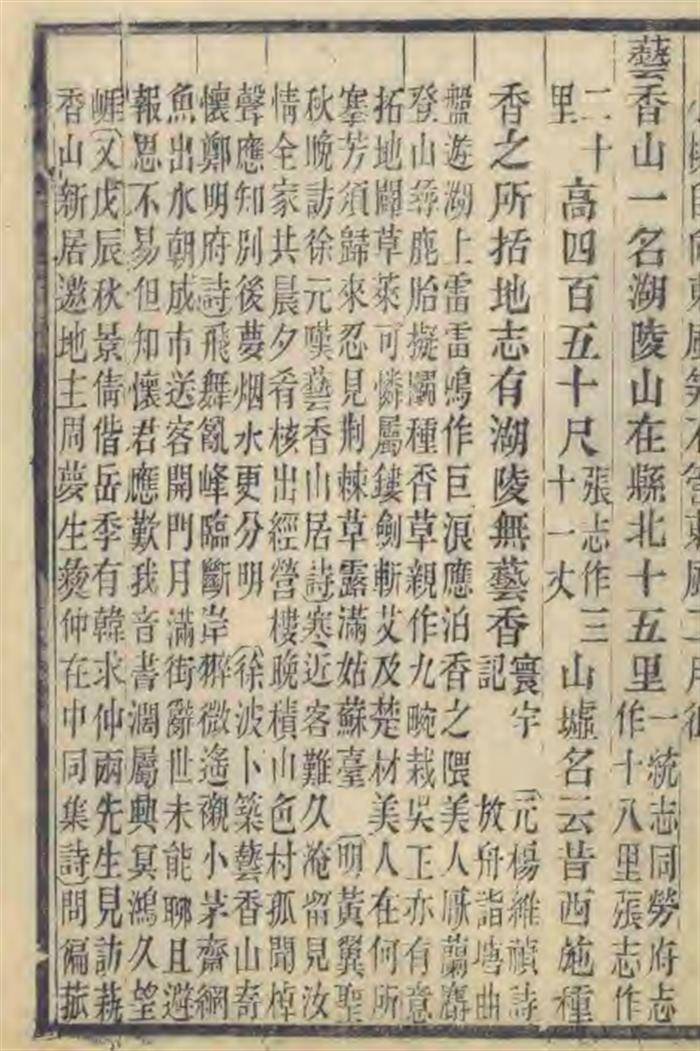 藝香山一名湖陵山在縣北十五里一統志同勞府志
作十八里張志作
二十里高四百五十尺張志作三
十一丈山墟名云昔西施種
香之所括地志有湖陵無藝香寰宇
記元楊維禎詩
放舟詣塘曲
盤遊湖上雷雷鳴作巨浪應泊香之隈美人厭蘭麝
登山尋鹿胎擬斸種香草親作九畹栽吳王亦有意
拓地闢草萊可憐屬鏤劍斬艾及楚材美人在何所
搴芳須歸來忍見荆棘草露滿姑蘇臺 明黃翼聖
秋晚訪徐元嘆藝香山居詩寒近客難久淹留見汝
情全家共晨夕肴核出經營樓晚積山色村孤聞棹
聲應知別後夢烟水更分明 徐波卜築藝香山寄
懷鄭明府詩飛舞亂峰臨斷岸微遙襯小茅齋網
魚出水朝成市送客開門月滿街辭世未能聊且避
報恩不易但知懷君應歎我音書濶屬興冥鴻久望
崕又戊辰秋景倩偕岳季有韓求仲兩先生見訪藝
香山新居邀地主周夢生仲在中同集詩問徧菰